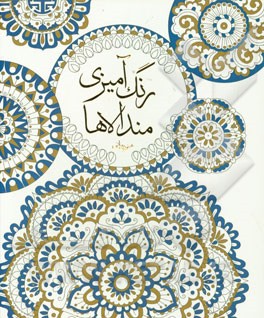 رنگ آمیزی
ماندالاها